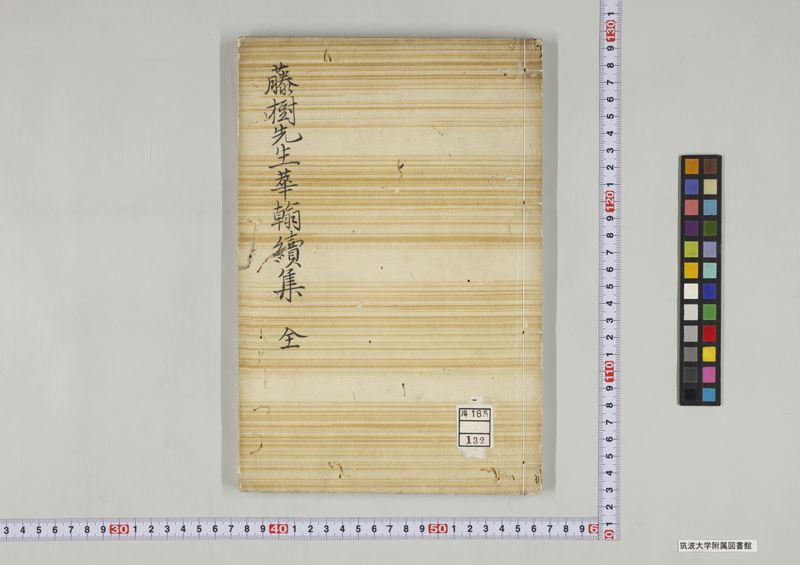 藤樹先生華翰續集 全
185
132
130
120
110
30
40
50
筑波大学附属図書館